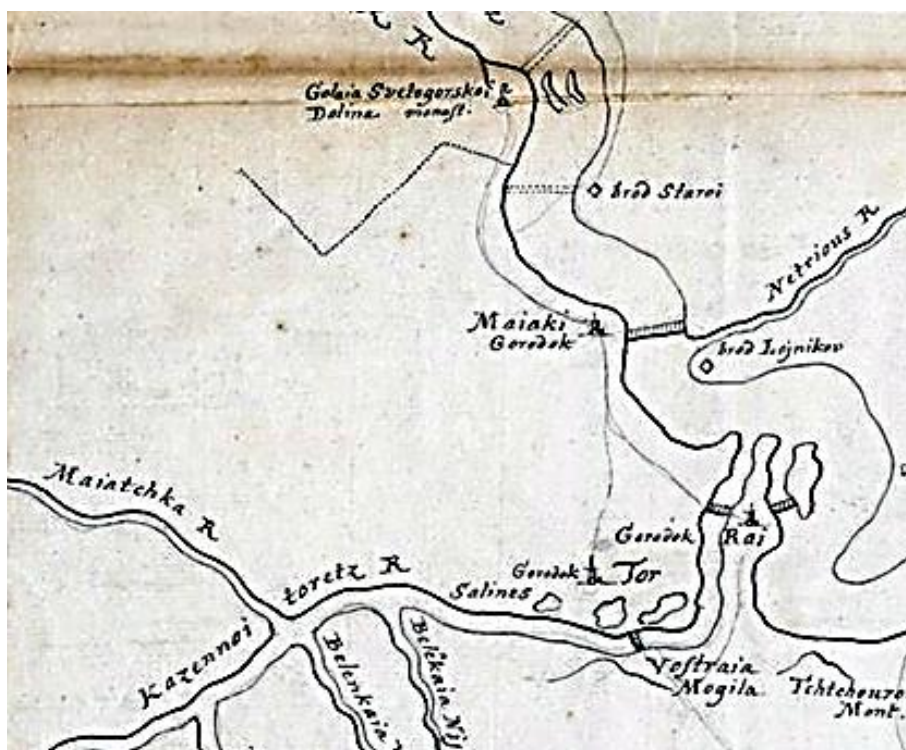 R
R
Golaia Svetogorskoi
Dolina monast.
brod Staroi
Netrious R
Maiaki
Gorodok
brod Lojnikov
Maiatchka R
Gorodok Rai
Gorodok Tor
toretz R
Salines
Kazennoi
Belenkaia
Vostraia
Mogila
Tchtchouro
Mont.